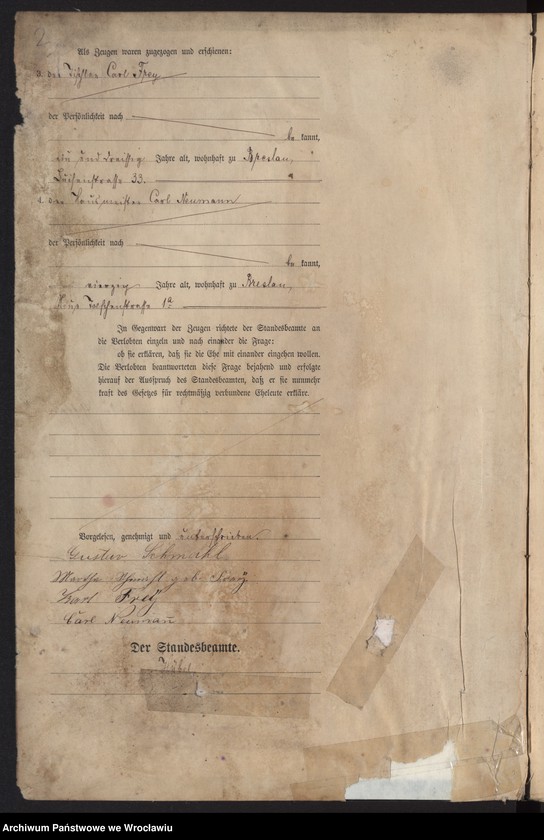 2
Als Zeugen waren zugezogen und erschienen:
3. der Tischler Carl Frey
der Persönlichkeit nach
be kannt,
ein und dreißig Jahre alt, wohnhaft zu Breslau,
33.
4. der Haushälter Carl Neumann
der Persönlichkeit nach
be kannt,
vierzig Jahre alt, wohnhaft zu Breslau,
1a
In Gegenwart der Zeugen richtete der Standesbeamte an
die Verlobten einzeln und nach einander die Frage:
ob sie erklären, daß sie die Ehe mit einander eingehen wollen.
Die Verlobten beantworteten diese Frage bejahend und erfolgte
hierauf der Ausspruch des Standesbeamten, daß er sie nunmehr
kraft des Gesetzes für rechtmäßig verbundene Eheleute erkläre.
Vorgelesen, genehmigt und unterschrieben.
Gustav
Martha geb. Frey
Karl Frey
Carl Neumann
Der Standesbeamte.
Archiwum Państwowe we Wrocławiu